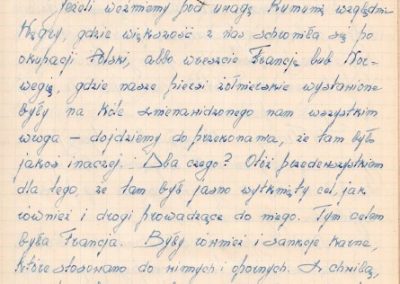 Jeżeli weźmiemy pod uwagę Rumunię względnie
Węgry, gdzie większość z nas schroniła się po
okupacji Polski, albo wreszcie Francję lub Nor-
wegię, gdzie nasze piersi żołnierskie wystawione
były na kule znienawidzonego nam wszystkim
wroga – dojdziemy do przekonania, że tam było
jakoś inaczej. Dla czego? Otóż przedewszystkiem
dla tego, że tam był jasno wytknięty cel, jak
również i drogi prowadzące do niego. Tym celem
była Francja. Były również i sankcje karne,
które stosowano do winnych i opornych. Z chwilą,